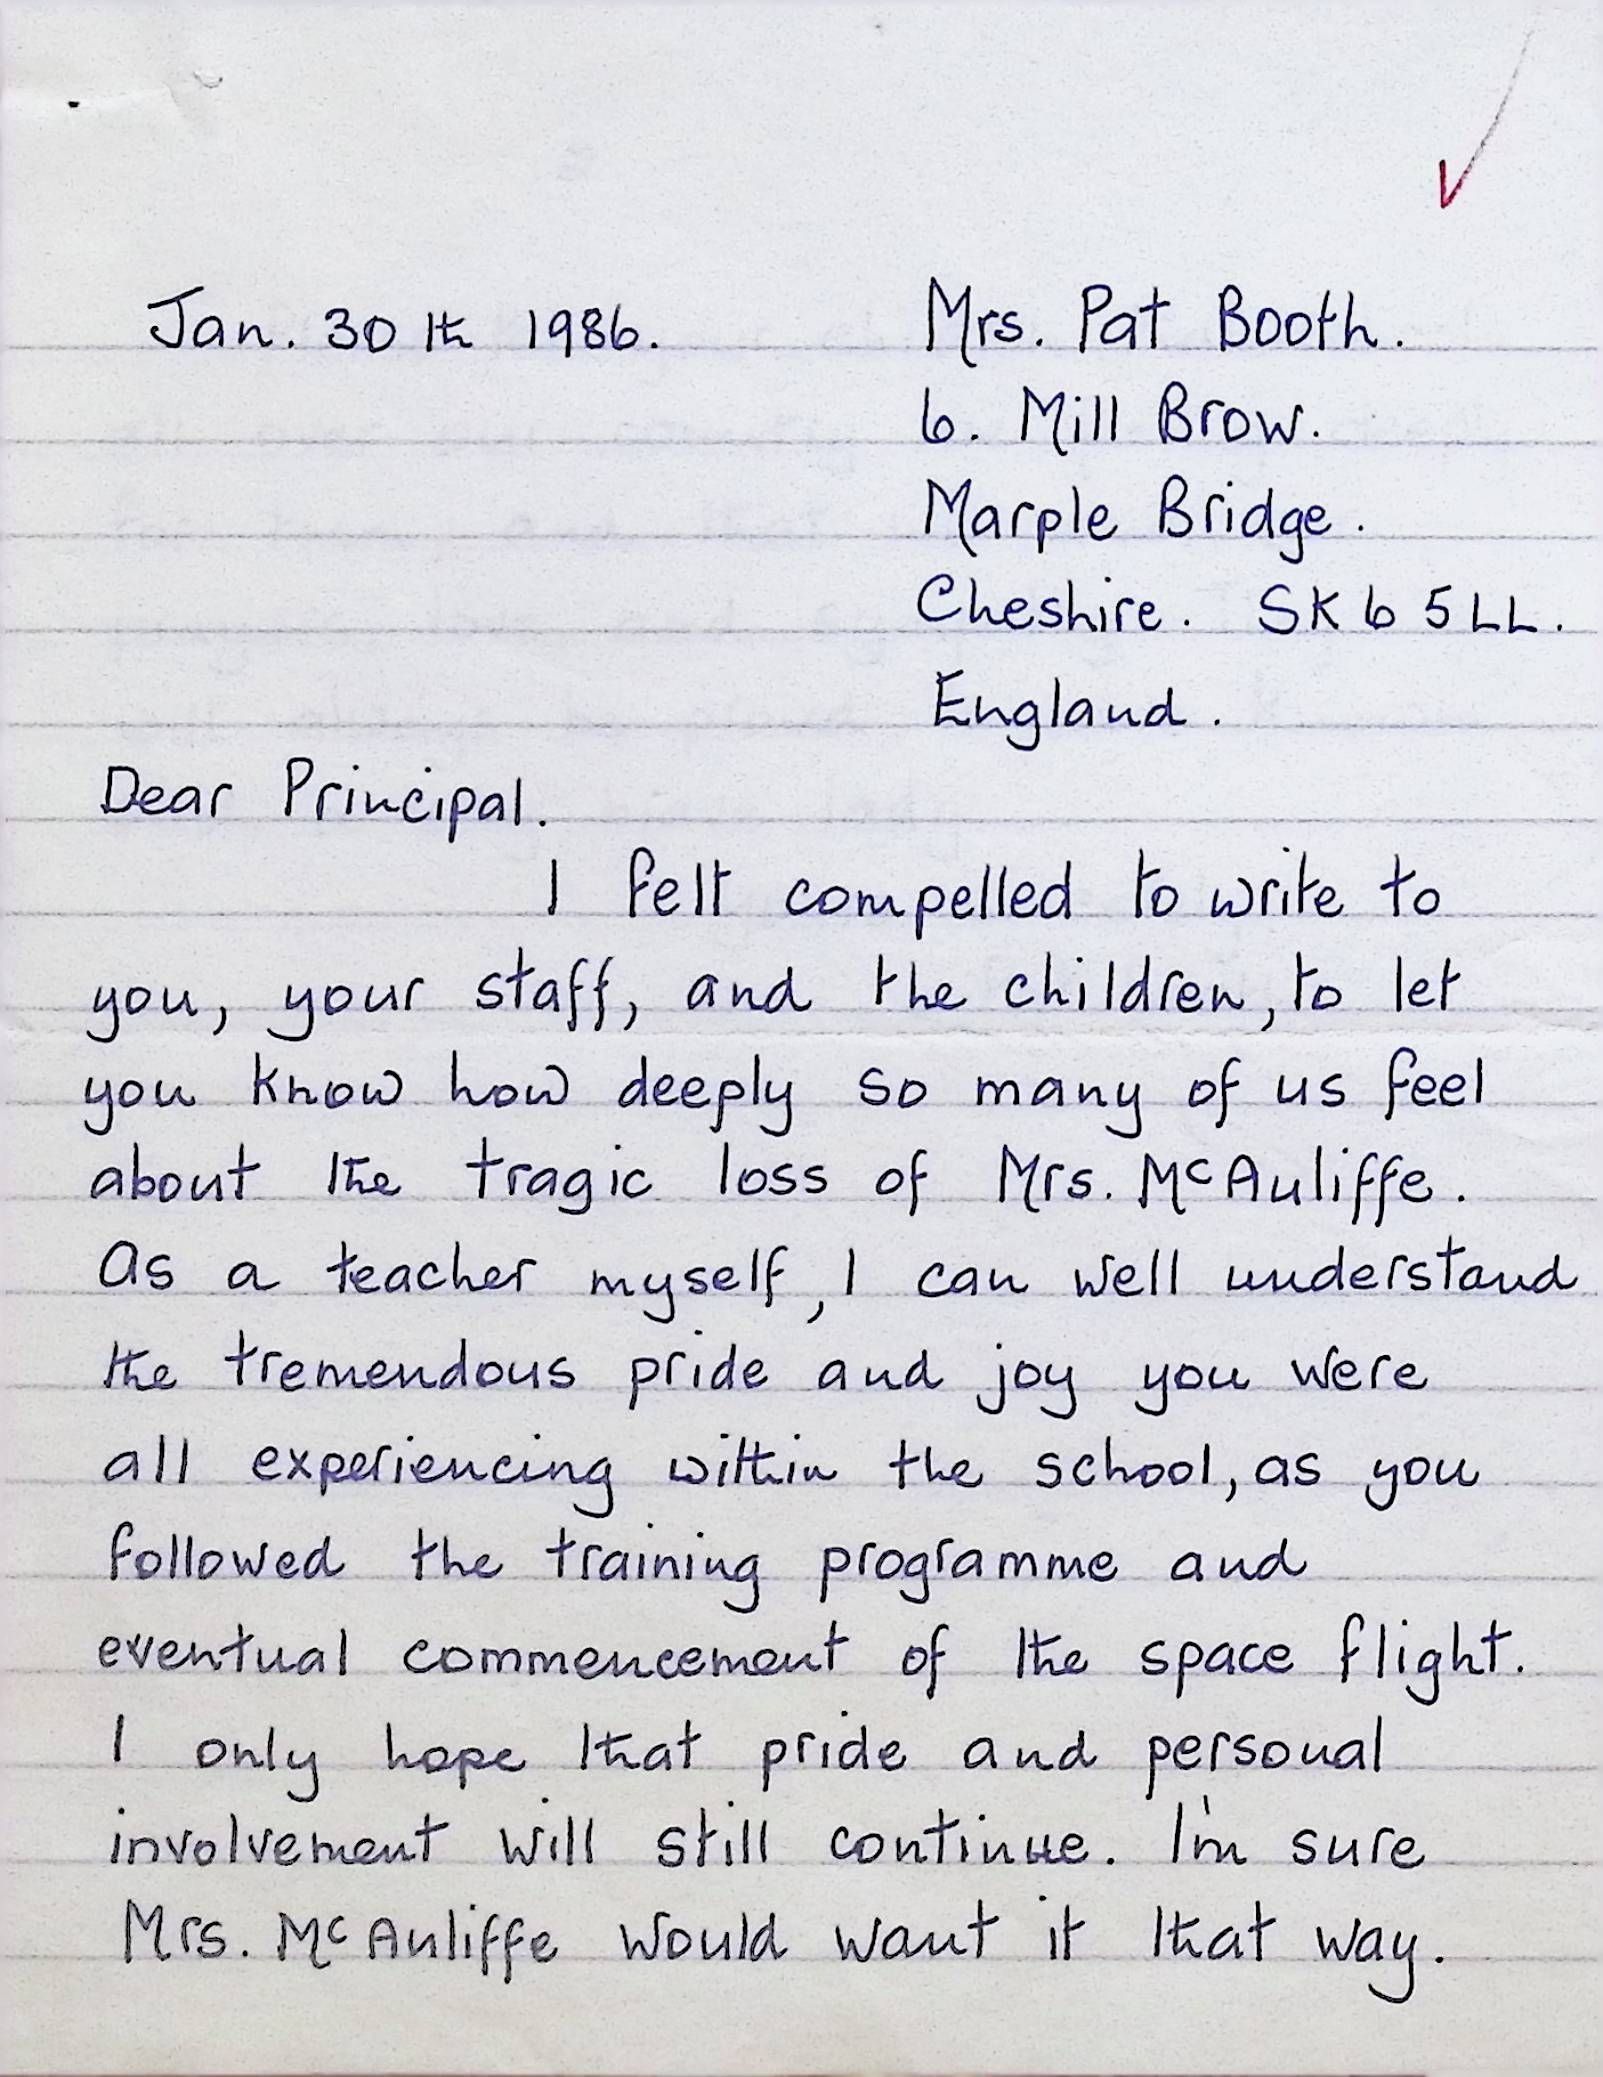 Jan. 30th 1986.
Mrs. Pat Booth.
6. Mill Brow.
Marple Bridge.
Cheshire. SK6 5LL.
England.
Dear Principal.
I felt compelled to write to
you, your staff, and the children, to let
you know how deeply so many of us feel
about the tragic loss of Mrs. McAuliffe.
As a teacher myself, I can well understand
the tremendous pride and joy you were
all experiencing within the school, as you
followed the training programme and
eventual commencement of the space flight.
I only hope that pride and personal
involvement will still continue. I'm sure
Mrs. McAuliffe would want it that way.